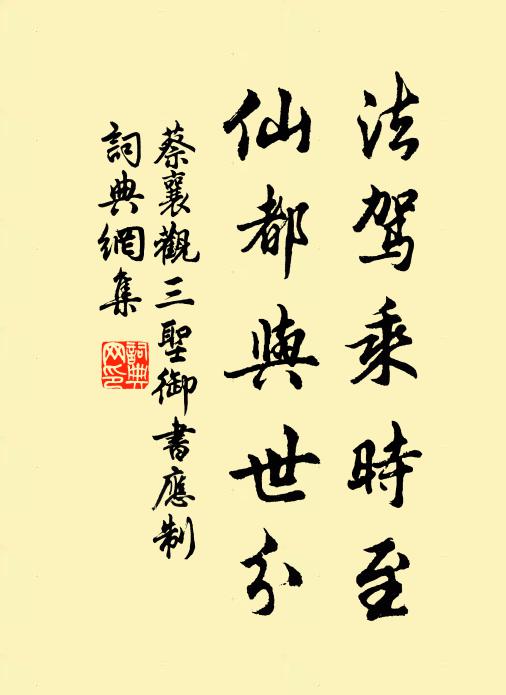 法駕乘時至
仙都與世分
蔡襄觀三聖御書應制
詞典網集
詞典
网印